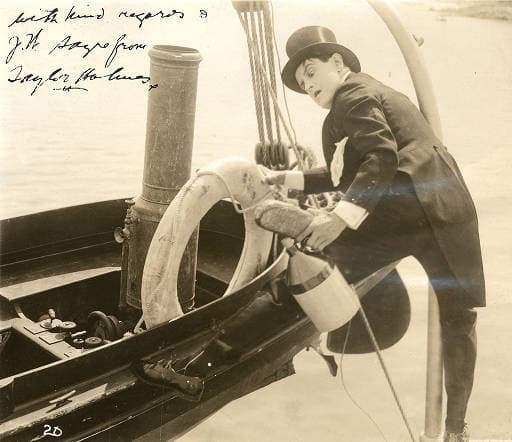 with kind regards to
J.W. Sayre from
Taylor Holmes
20